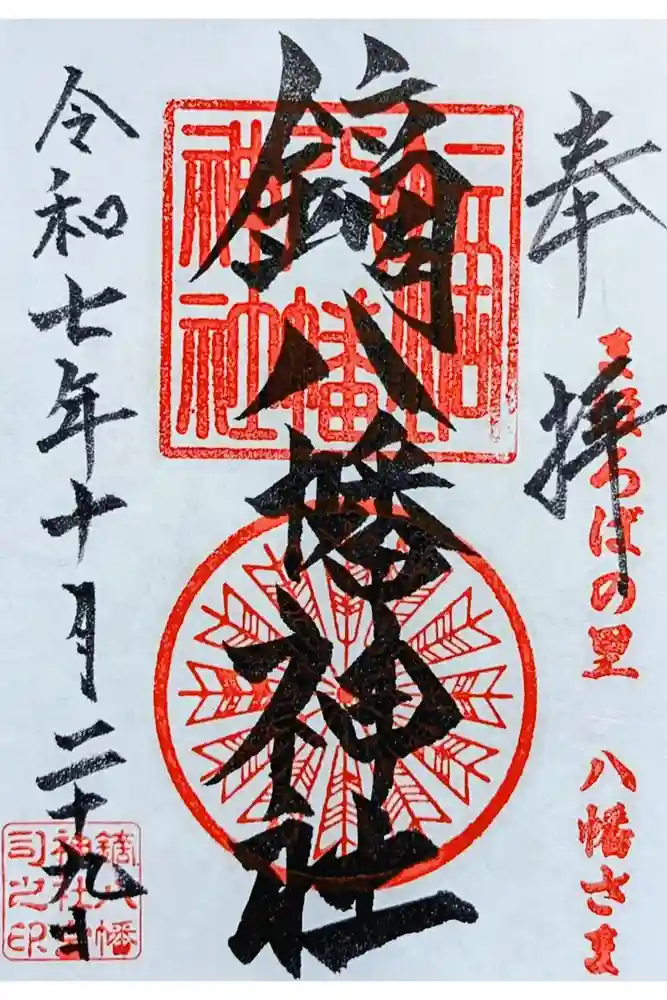 奉拝
まほろばの里　八幡さま
鏑八幡神社
令和七年十月二十九日
鏑八幡
神社宮
司之印